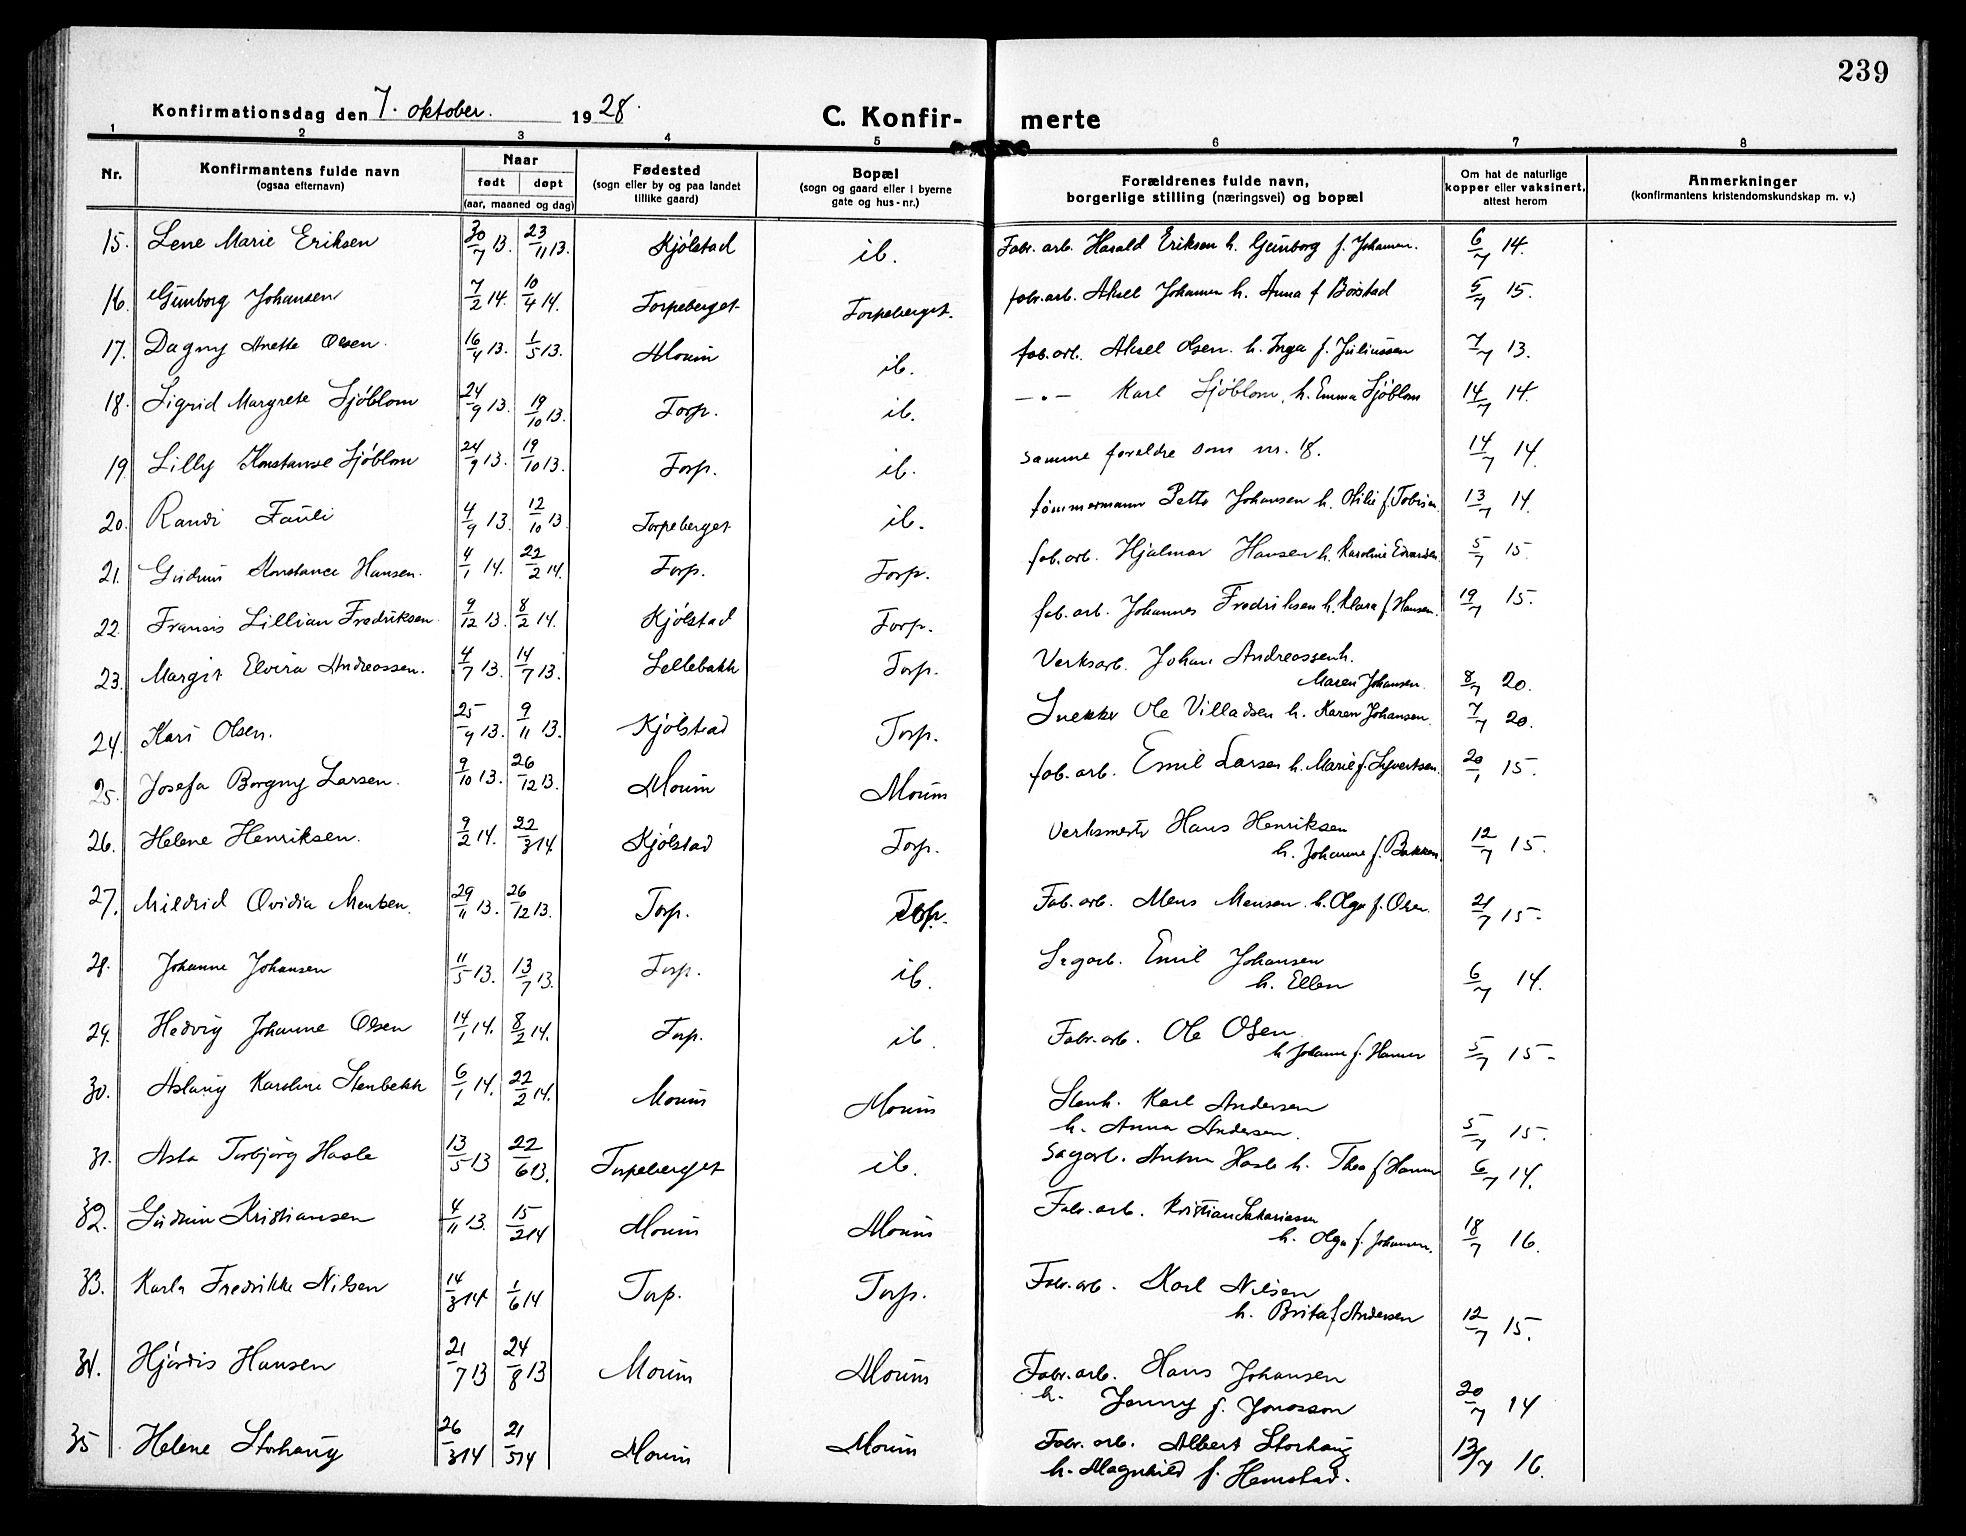 239
Konfirmationsdag den 7. oktober. 1928.
C. Konfir- merte
1 2 3 4 5 6 7 8
Nr. Konfirmantens fulde navn (ogsaa efternavn) Naar født døpt (aar, maaned og dag) Fødested (sogn eller by og paa landet tillike gaard) Bopæl (sogn og gaard eller i byerne gate og hus-nr.) Forældrenes fulde navn, borgerlige stilling (næringsvei) og bopæl Om hat de naturlige kopper eller vaksinert, attest herom Anmerkninger (konfirmantens kristendomskundskap m. v.)
15. Lene Marie Eriksen 30/7 13. 23/11 13. Kjølstad ib. Fabr. arb. Harald Eriksen h. Gunborg f. Johansen. 6/7 14.
16. Gunborg Johansen 7/2 14. 10/4 14. Torpeberget Torpeberget. fabr. arb. Aksel Johansen h. Anna f Boistad 5/7 15.
17. Dagny Anette Olsen. 16/4 13. 1/5 13. Moum ib. fab. arb. Aksel Olsen. h. Inga f. Juliussen 7/7 13.
18. Sigrid Margrete Sjöblom 24/9 13. 19/10 13. Torp. ib. —"— Karl Sjöblom, h. Emma Sjöblom 14/7 14.
19. Lilly Konstanse Sjöblom 24/9 13. 19/10 13. Torp. ib. samme foreldre som nr. 18. 14/7 14.
20. Randi Fauli 4/9 13. 12/10 13. Torpeberget ib. tømmermann Petter Johansen h. Otilie f. Tobisen 13/7 14.
21. Gudrun Konstance Hansen. 4/1 14. 22/2 14. Torp. Torp. fab. arb. Hjalmar Hansen h. Karoline Edvardsen 5/7 15.
22. Francis Lillian Fredriksen. 9/12 13. 8/2 14. Kjølstad Torp. fab. arb. Johannes Fredriksen h. Klara f. Hansen. 19/7 15.
23. Margit Elvira Andreassen. 4/7 13. 14/7 13. Lellebakk Torp. Verksarb. Johan Andreassen h.
Maren Johansen. 8/7 20.
24. Kari Olsen. 25/9 13. 9/11 13. Kjølstad Torp. Snekker Ole Villadsen h. Karen Johansen. 7/7 20.
25. Josefa Borgny Larsen. 9/10 13. 26/12 13. Moum Moum fab. arb. Emil Larsen h. Marie f. Syvertsen. 20/1 15.
26. Helene Henriksen. 9/2 14. 22/3 14 Kjølstad Torp. Verksmestr Hans Henriksen
h. Johanne f. Bakken. 12/7 15.
27. Mildrid Ovidia Mensen. 29/11 13. 26/12 13. Torp. Torp. Fab. arb. Mens Mensen. h. Olga f. Olsen. 21/7 15.
28. Johanne Johansen 11/5 13. 13/7 13. Torp. ib. Sagarb. Emil Johansen
h. Ellen 6/7 14.
29. Hedvig Johanne Olsen 14/1 14. 8/2 14. Torp. ib. Fabr. arb. Ole Olsen
h Johanne f. Hansen 5/7 15.
30. Aslaug Karoline Stenbekk 6/1 14. 22/2 14. Moum Moum Stenh. Karl Andersen
h. Anna Andersen. 5/7 15.
31. Asta Torbjørg Hasle 13/5 13 22/6 13. Torpeberget ib. Sagarb. Anton Hasle h. Thea f Hansen 6/7 14.
32. Gudrun Kristiansen 4/11 13. 15/2 14 Moum Moum Fabr. arb. Kristian Sakariassen
h. Olga f. Johansen. 18/7 16.
33. Karla Fredrikke Nilsen 14/3 14 1/6 14 Torp. Torp. Fabr. arb. Karl Nilsen
h. Brita f Andersen 12/7 15.
34. Hjørdis Hansen 21/7 13 24/8 13 Moum Moum Fabr. arb. Hans Johansen
h. Jenny f. Jonasson 20/7 14
35 Helene Storhaug 26/3 14 21/5 14 Moum Moum Fabr. arb. Albert Storhaug
h. Magnhild f. Hemstad. 13/7 16.